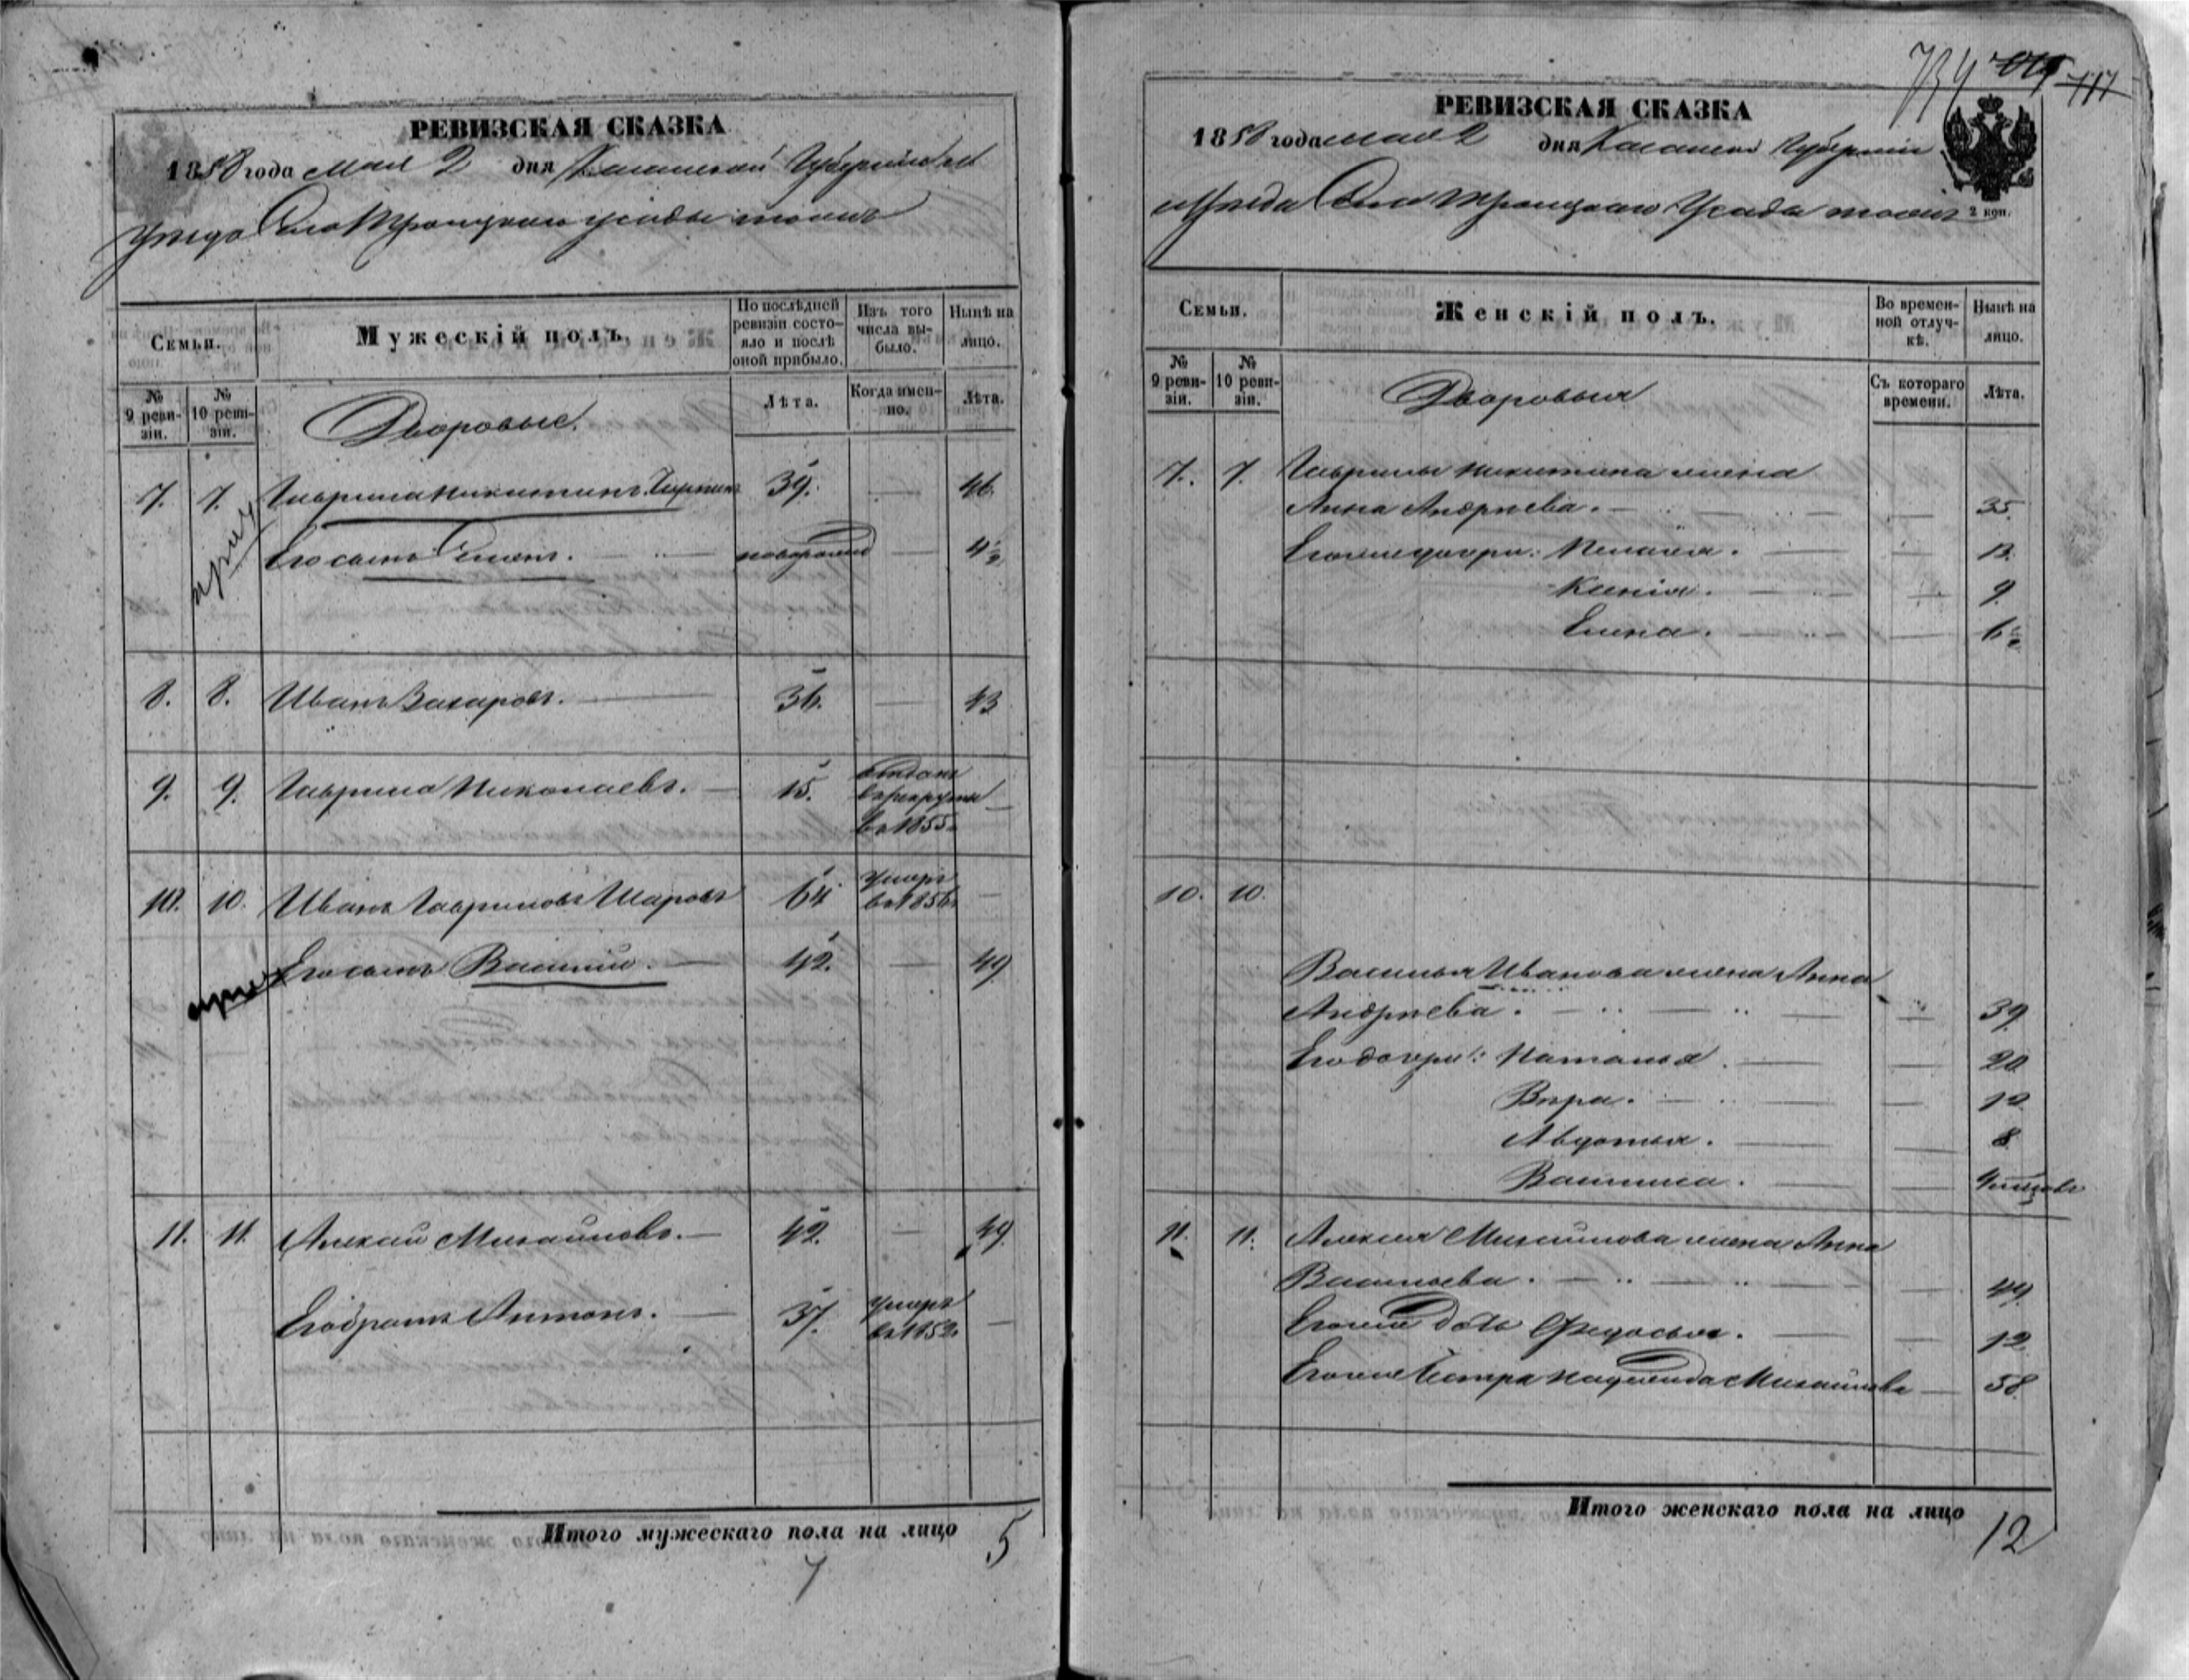 РЕВИЗСКАЯ СКАЗКА
1858 года мая 2 дня Казанской Губерніи
Уезда Села Троицкаго усады тожъ
Семьи.
Мужескій полъ.
По послѣдней ревизіи состояло и послѣ оной прибыло.
Изъ того числа выбыло.
Нынѣ на лицо.
№ 9 ревизіи.
№ 10 ревизіи.
Дворовые.
Лѣта.
Когда именно.
Лѣта.
7. 7. Гаврила Никитинъ 39. — 46.
Его сынъ Семенъ. — новорожд —
8. 8. Иванъ Захаровъ. — 36. — 43
9. 9. Гаврила Николаевъ. — 15. отданъ
в рекруты —
въ 1855
10. 10. Иванъ Гавриловъ Шаровъ 64 умеръ
въ 1856 —
Его сынъ Василий. — 42. — 49
11. 11. Алексей Михайловъ. — 42. — 49.
Его братъ Антонъ. — 37. умеръ
въ 1852. —
Итого мужескаго пола на лицо 5
7
734 717
РЕВИЗСКАЯ СКАЗКА
1858 года мая 2 дня Казанской Губерніи
Уезда Села Троицкаго Усада тожъ
2 коп.
Семьи.
Женскій полъ.
Во временной отлучкѣ.
Нынѣ на лицо.
№ 9 ревизіи.
№ 10 ревизіи.
Дворовыя
Съ котораго времени.
Лѣта.
7. 7. Гаврилы Никитина жена
Анна Андрѣева. — — 35.
Его же дочери: Пелагея. — —
Ксенія. — — 9
Елена. — —
10. 10.
Василья Иванова жена Анна
Андрѣева. — — 39
Его дочери: Наталья. — — 20
Вѣра. — — 12
Авдотья. — — 8
Василиса. — —
11. 11. Алексея Михайлова жена Анна
Васильева. — — 49.
Его же дочь Федосья. — — 12
Его же Сестра Надежда Михайлова — 58
Итого женскаго пола на лицо 12